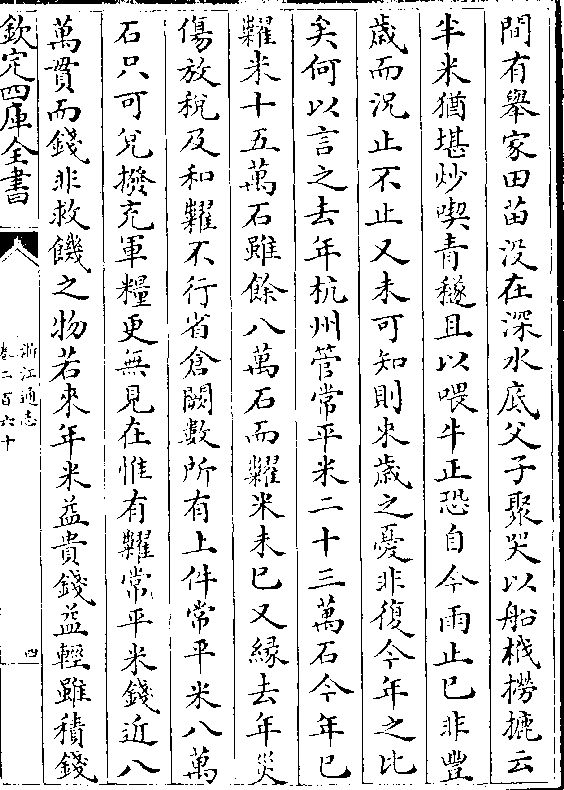 間有舉家田苗没在深水底父子聚哭以船栰撈摝云
半米猶堪炒喫青穟且以喂牛正恐自今雨止已非豐
歳而況止不止又未可知則來歳之憂非復今年之比
矣何以言之去年杭州管常平米二十三萬石今年已
糶米十五萬石雖餘八萬石而糶米未已又縁去年災
傷放稅及和糴不行省倉闕數所有上件常平米八萬
石只可兌撥充軍糧更無見在惟有糶常平米錢近八
萬貫而錢非救饑之物若來年米益貴錢益輕雖積錢
欽定四庫全書
浙江通志
卷二百六十
四